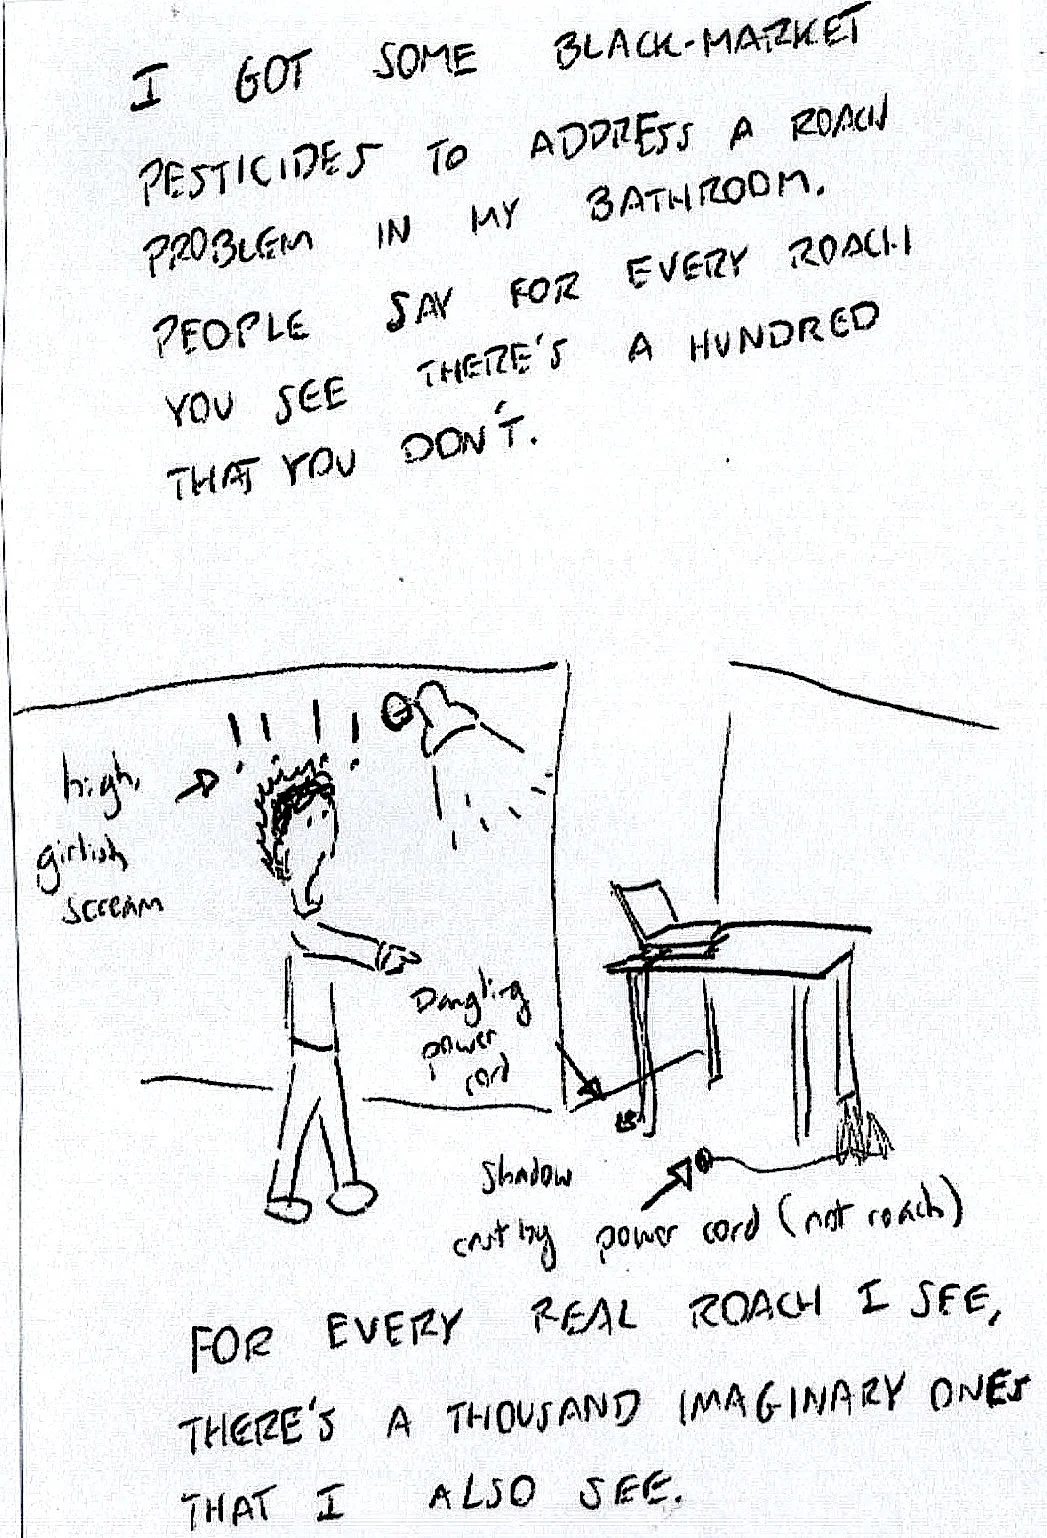 I GOT SOME BLACK-MARKET
PESTICIDES TO ADDRESS A ROACH
PROBLEM IN MY BATHROOM.
PEOPLE SAY FOR EVERY ROACH
YOU SEE THERE'S A HUNDRED
THAT YOU DON'T.
! ! ! !
high,
girlish
scream
Dangling
power
cord
Shadow
cast by power cord (not roach)
FOR EVERY REAL ROACH I SEE,
THERE'S A THOUSAND IMAGINARY ONES
THAT I ALSO SEE.